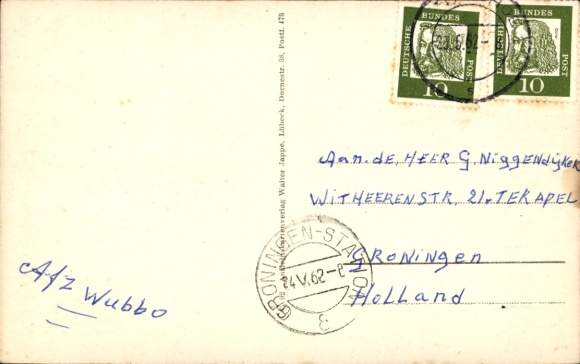 DEUTSCHE BUNDESPOST
10
DEUTSCHE BUNDESPOST
10
Ansichtskartenverlag Walter Jappe, Lübeck, Dornestr. 38, Postf. 475
Aan. DE, HEER G. Niggendijker
WITHEERENSTR, 21. TERAPEL
GRONINGEN
Holland
GRONINGEN-STATION
24 V. 62
Afz Wubbo